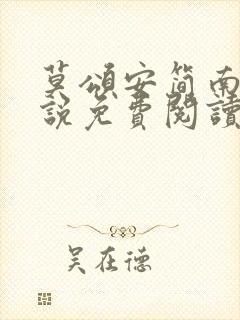 莫頌安簡南
說免費閱讀
吴在德